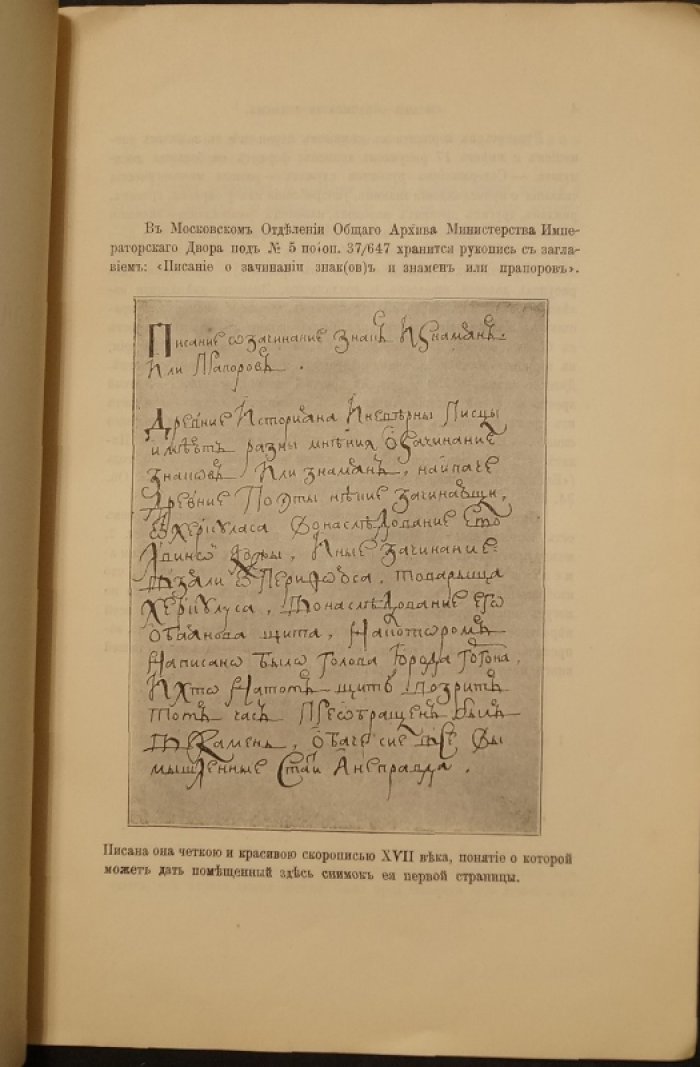 Въ Московскомъ Отдѣленіи Общаго Архива Министерства Импе-
раторскаго Двора подъ № 5 по оп. 37/647 хранится рукопись съ загла-
віемъ: «Писаніе о зачинаніи знак(ов)ъ и знаменъ или прапоровъ».
Писание ѡ зачинание знакъ И знамянъ
Или Прапоровъ .
Древние Историки И невѣрны Писцы
имѣютъ разны мнѣния О зачинание
знаковъ Или знамянъ, наипаче
Древние Поэты
Херкуласа О наслѣдование ево
Иные зачинание
товарыща
Херкулуса, наслѣдование его
щита, На котѡромъ
Написано было голова
И хто На тотъ щитъ позритъ
тотъ часъ Преѡбращенъ былъ
Камень, Обаче сие все вы
мышленные А неправда .
Писана она четкою и красивою скорописью XVII вѣка, понятіе о которой
можетъ дать помѣщенный здѣсь снимокъ ея первой страницы.